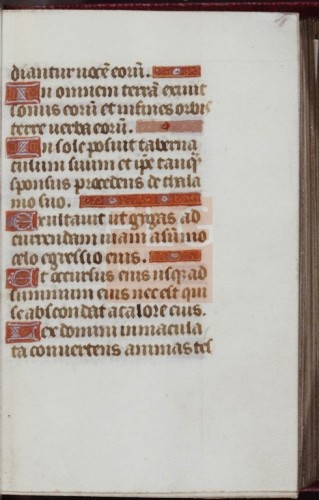 diantur uocē eorū.
In omnem terrā exiuit
sonus eorū et in fines orbis
terre uerba eorū.
In sole posuit taberna
culum suum et ip̄e tanq̄
sponsus procedens de thala
mo suo.
Exultauit ut gygas ad
currendam uiam a sūmo
celo egressio eius.
Et occursus eius usq; ad
summum eius nec est qui
se abscondat a calore eius.
Lex domini inmacula
ta conuertens animas tes